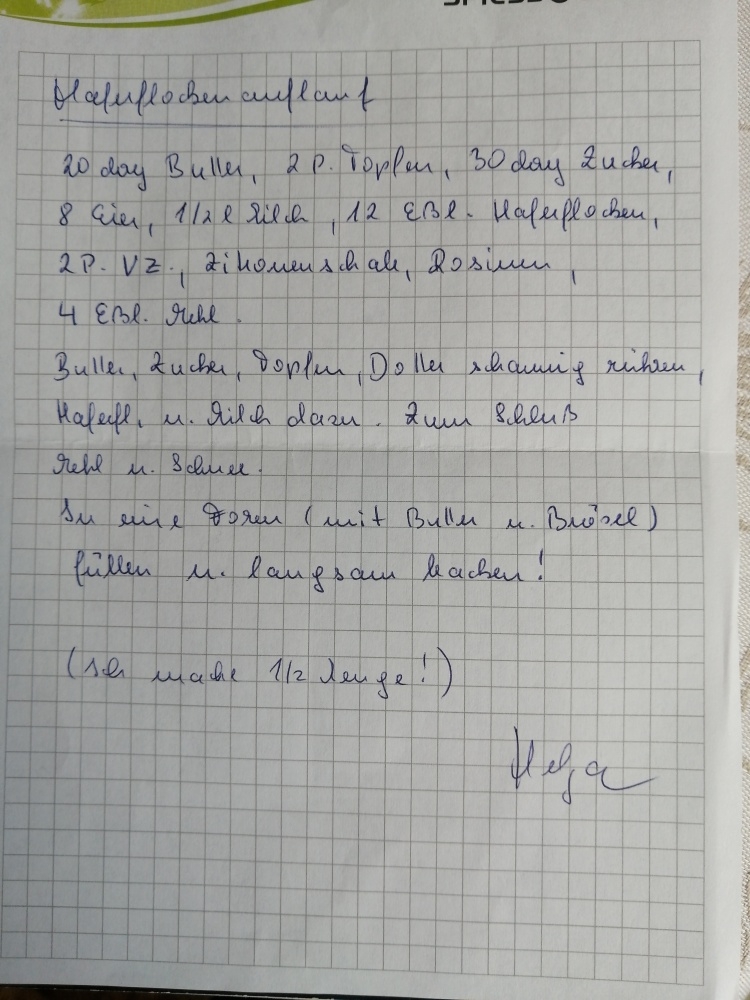 Haferflockenauflauf
20 dag Butter, 2 P. Topfen, 30 dag Zucker,
8 Eier, 1/2 l Milch, 12 EBl. Haferflocken,
2 P. VZ., Zitronenschale, Rosinen,
4 EBl. Mehl.
Butter, Zucker, Topfen, Dotter schaumig rühren,
Haferfl. u. Milch dazu. Zum Schluß
Mehl u. Schnee.
In eine Form (mit Butter u. Brösel)
füllen u. langsam backen!
(Ich mache 1/2 Menge!)
Helga